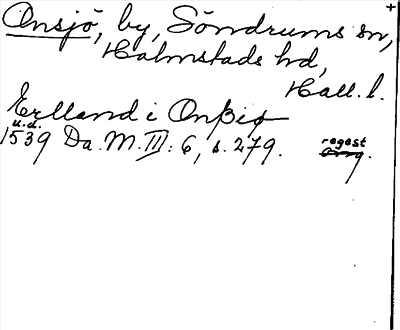 Onsjö, by, Söndrums sn,
Halmstads hd,
Hall. l.
Erlland i Onßiø
u.d.
1539 Da. M. III: 6, s. 279. regest
orig.